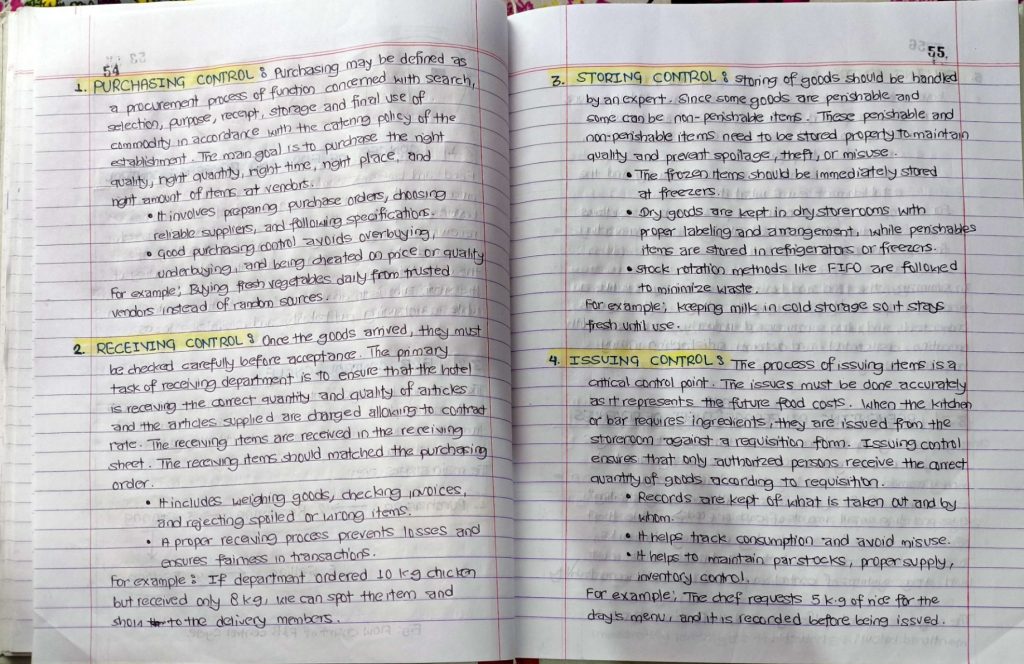 54
1. PURCHASING CONTROL : Purchasing may be defined as
a procurement process of function concerned with search,
selection, purpose, receipt, storage and final use of
commodity in accordance with the catering policy of the
establishment. The main goal is to purchase the right
quality, right quantity, right time, right place, and
right amount of items at vendors.
• It involves preparing purchase orders, choosing
reliable suppliers, and following specifications.
• Good purchasing control avoids overbuying,
underbuying, and being cheated on price or quality
For example; Buying fresh vegetables daily from trusted
vendors instead of random sources.
2. RECEIVING CONTROL : Once the goods arrived, they must
be checked carefully before acceptance. The primary
task of receiving department is to ensure that the hotel
is receiving the correct quantity and quality of articles
and the articles supplied are charged allowing to contract
rate. The receiving items are received in the receiving
sheet. The receiving items should matched the purchasing
order.
• It includes weighing goods, checking invoices,
and rejecting spoiled or wrong items.
• A proper receiving process prevents losses and
ensures fairness in transactions.
For example : If department ordered 10 kg chicken
but received only 8 kg, we can spot the item and
show to the delivery members.
55.
3. STORING CONTROL : Storing of goods should be handled
by an expert. Since some goods are perishable and
some can be non-perishable items. These perishable and
non-perishable items need to be stored property to maintain
quality and prevent spoilage, theft, or misuse.
• The frozen items should be immediately stored
at freezers.
• Dry goods are kept in dry storerooms with
proper labeling and arrangement, while perishables
items are stored in refrigerators or freezers.
• Stock rotation methods like FIFO are followed
to minimize waste.
For example; keeping milk in cold storage so it stays
fresh until use.
4. ISSUING CONTROL : The process of issuing items is a
critical control point. The issues must be done accurately
as it represents the future food costs. When the kitchen
or bar requires ingredients, they are issued from the
storeroom against a requisition form. Issuing control
ensures that only authorized persons receive the correct
quantity of goods according to requisition.
• Records are kept of what is taken out and by
whom.
• It helps track consumption and avoid misuse.
• It helps to maintain par stocks, proper supply,
inventory control.
For example; The chef requests 5 k.g of rice for the
day's menu, and it is recorded before being issued.